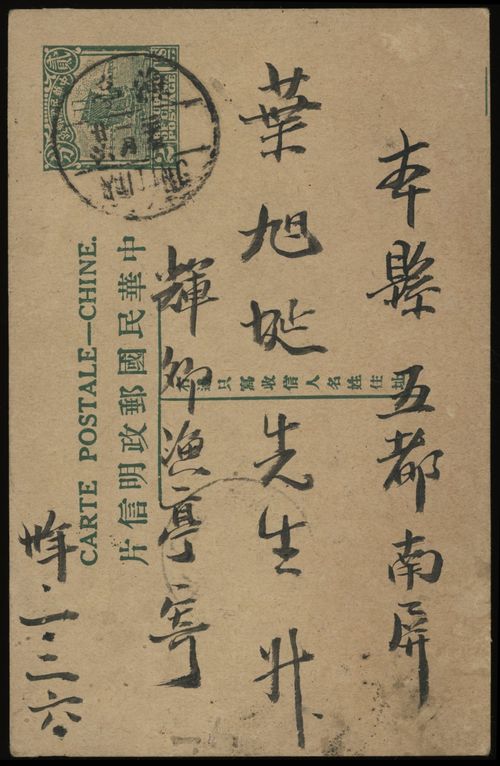 本縣五都南屏
葉旭埏先生升
輝卿漁亭寄
一.二六
CARTE POSTALE—CHINE.
中華民國郵政明信片
只寫收信人名姓住址